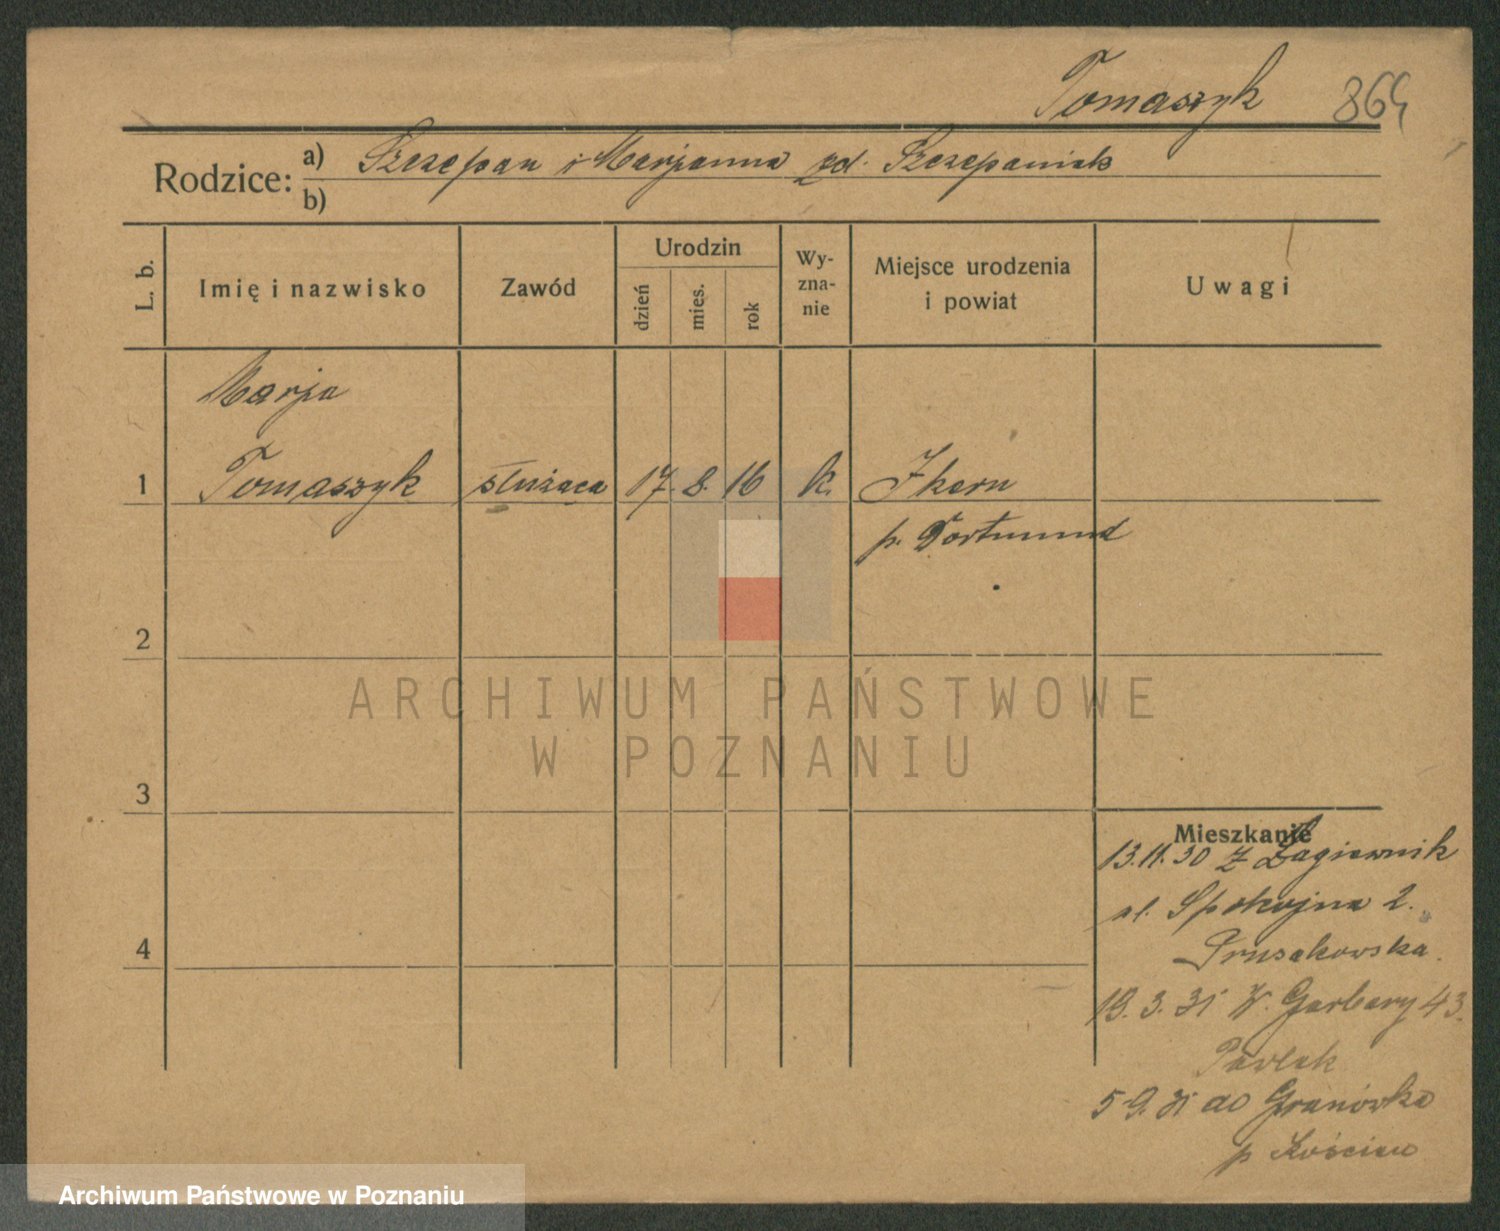 Tomaszyk 864
Rodzice: a) Szczepan i Marjanna zd. Szczepaniak
b)
L. b.
Imię i nazwisko
Zawód
Urodzin
dzień
mies.
rok
Wy-
zna-
nie
Miejsce urodzenia
i powiat
Uwagi
Marja
1 Tomaszyk służąca 17. 8. 16 k. Ikern
p. Dortmund
2
ARCHIWUM PAŃSTWOWE
W POZNANIU
3
Mieszkanie
13.11.30 z Łagiewnik
ul. Spokojna 2.
4
Prusakowska.
19.3.31 W. Garbary 43.
Pawlak
5 9. 31 do Granówka
p Kościan
Archiwum Państwowe w Poznaniu